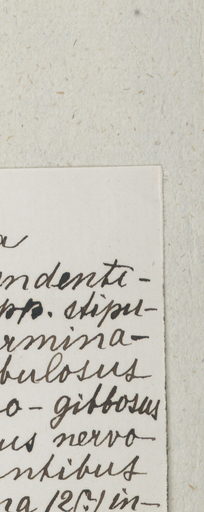 a
endenti-
pp. stipu-
rmina-
bulosus
o-gibbosus
us nervo
ntibus
na (25?) in-